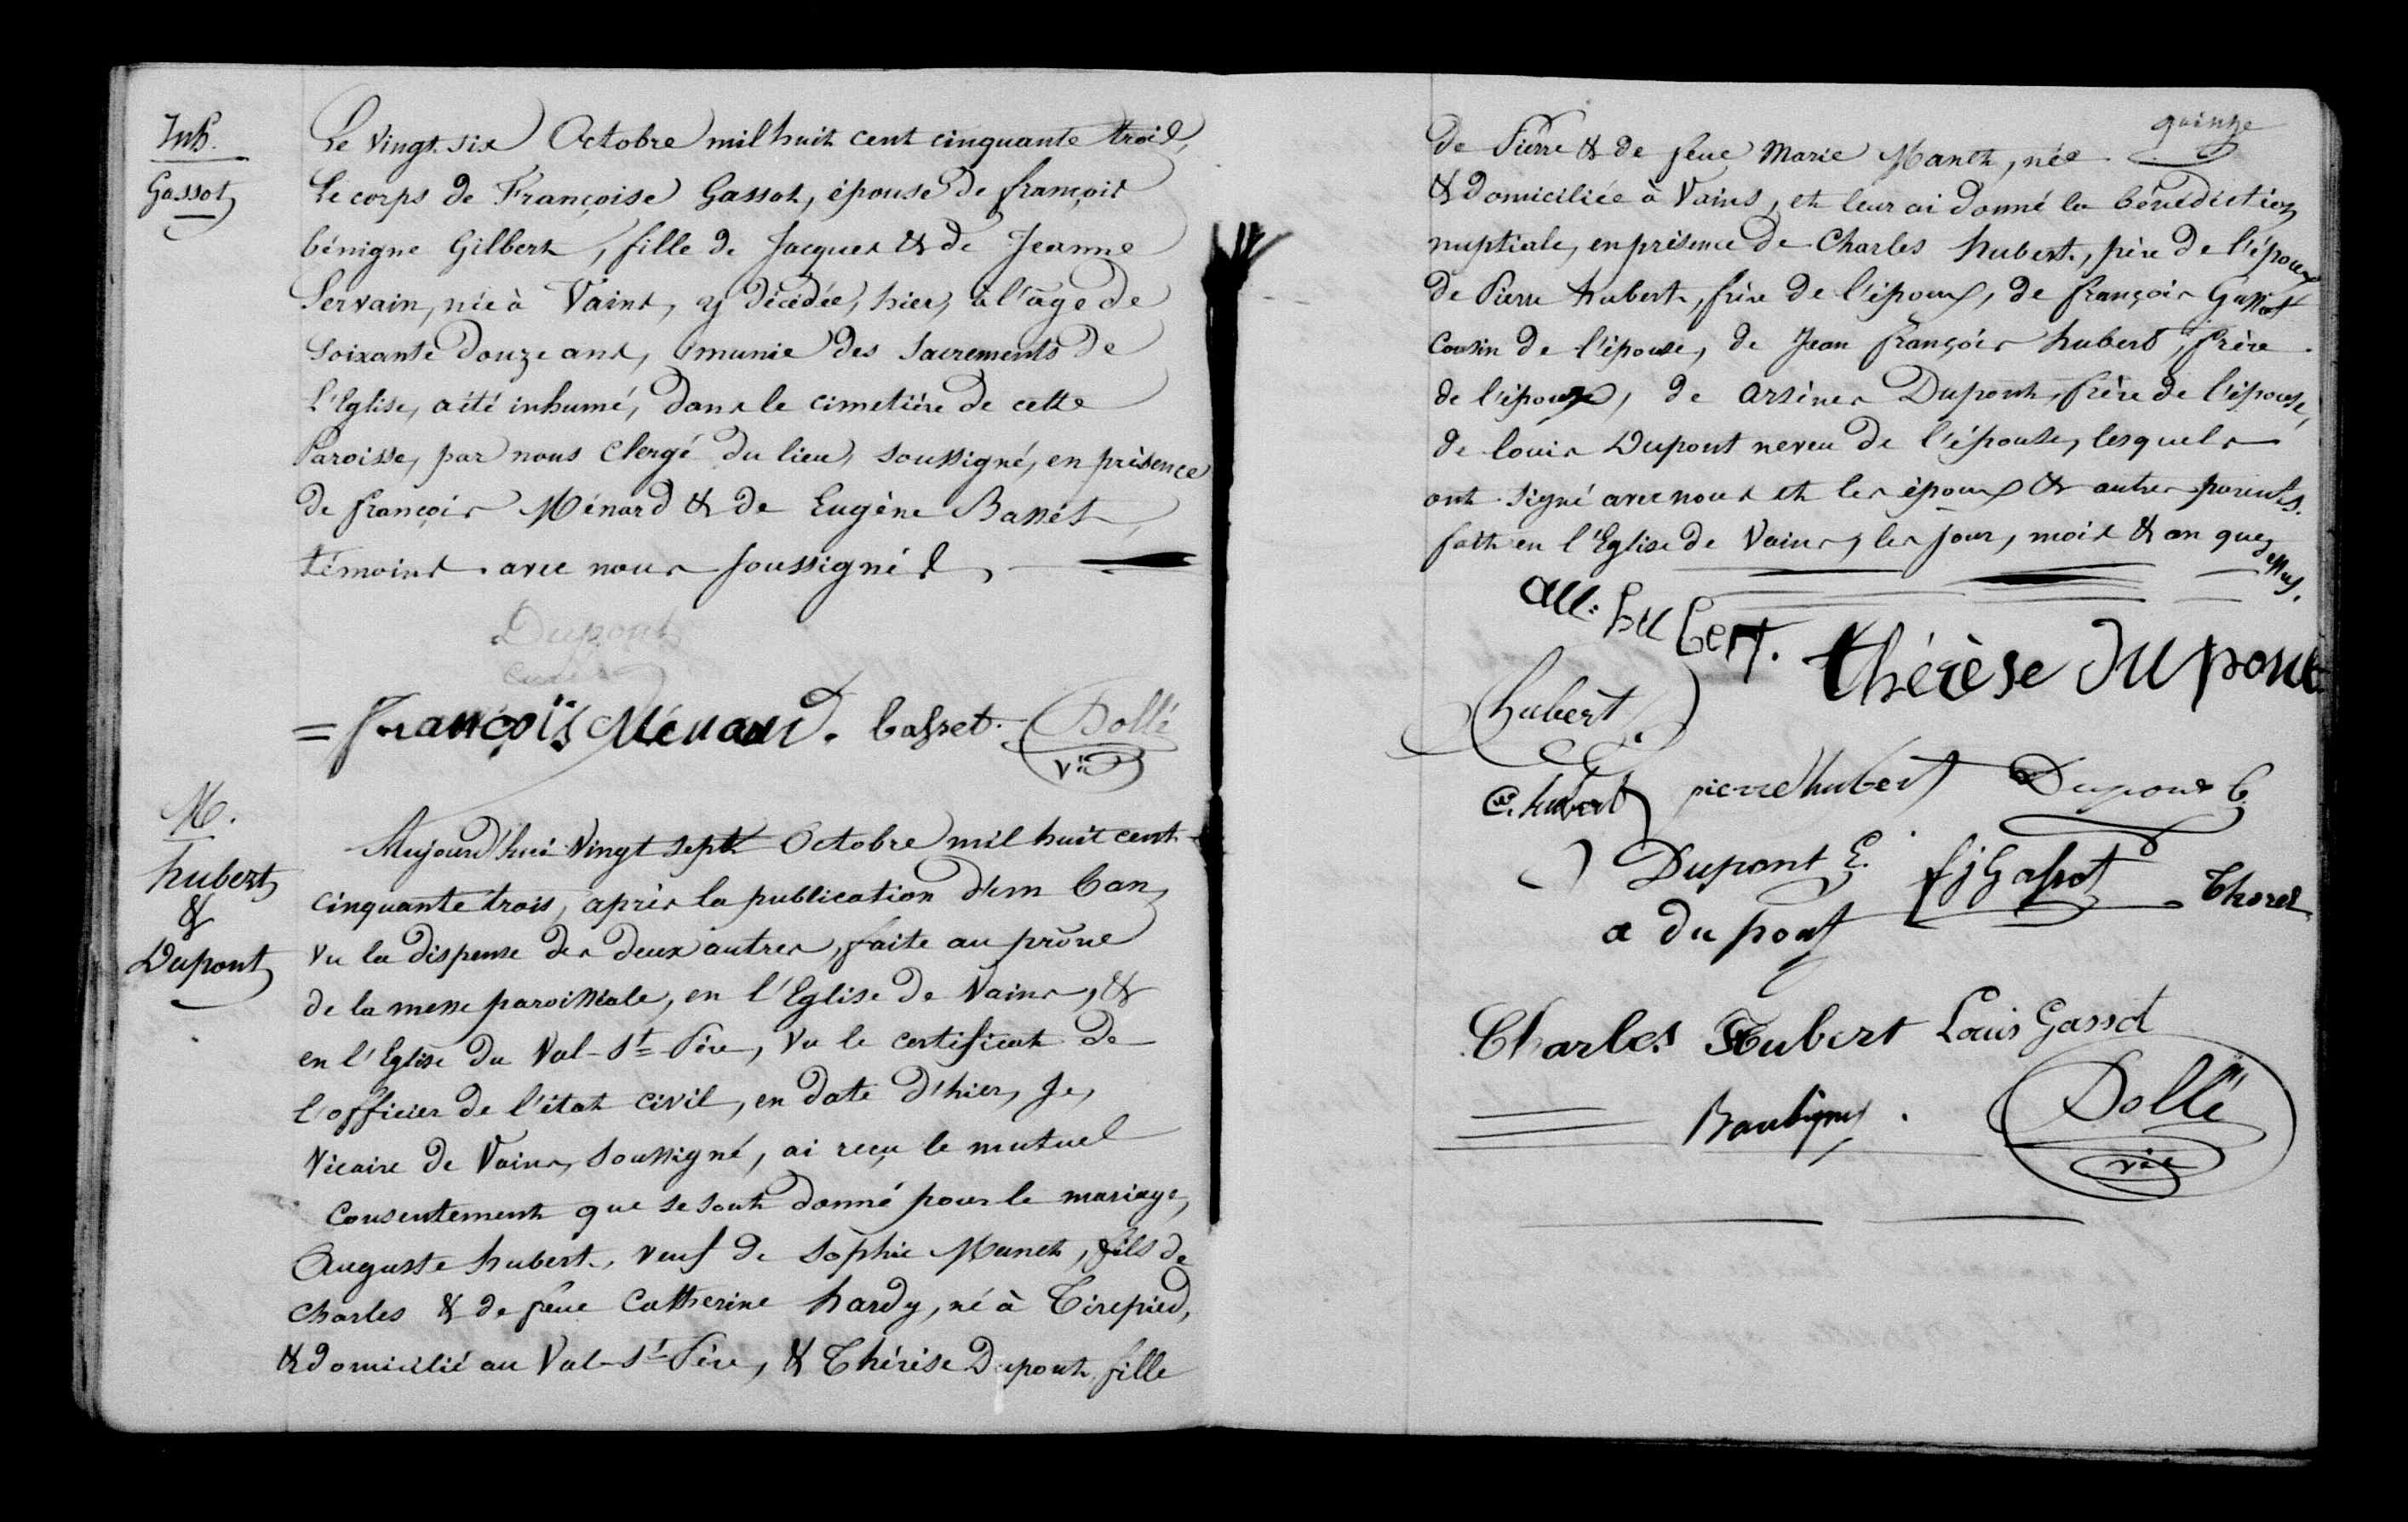 Inh.
Gassot
Le vingt six Octobre mil huit cent cinquante trois,
le corps de Françoise Gassot, épouse de françois
bénigne Gilbert, fille de Jacques & de Jeanne
Servain, née à Vains, y décédée, hier, à l'âge de
soixante douze ans, munie des Sacrements de
l'Eglise, a été inhumé, dans le cimetière de cette
Paroisse, par nous Clergé du lieu, soussigné, en présence
de françois Ménard & de Eugène Basset
témoins avec nous soussignés,
Dupont
curé
= françois Ménard. basset. Dollé
vic
M.
hubert
&
Dupont
Aujourd'hui vingt sept Octobre mil huit cent
cinquante trois, après la publication d'un ban,
vu la dispense des deux autres, faite au prône
de la messe paroissiale, en l'Eglise de Vains, &
en l'Eglise du Val-St-Père, vu le certificat de
l'officier de l'état civil, en date d'hier, Je,
vicaire de Vains, soussigné, ai reçu le mutuel
consentement que se sont donné pour le mariage,
Auguste hubert, veuf de Sophie Manet, fils de
Charles & de feue Catherine hardy, né à Tirepied,
& domicilié au Val-St-Père, & Thérèse Dupont, fille
quinze
de Pierre & de feue Marie Manet, née
& domiciliée à Vains, et leur ai donné la bénédiction
nuptiale, en présence de Charles hubert, père de l'époux
de Pierre hubert, frère de l'époux, de françois Gassot
Cousin de l'épouse, de Jean françois hubert, frère
de l'époux, de Arsènes Dupont, frère de l'épouse,
de louis Dupont neveu de l'épouse, lesquels
ont signé avec nous et les époux & autres parents.
fait en l'Eglise de Vains, les jour, mois & an que dessus.
hubert. thérèse Dupont
hubert
C. hubert pierre hubert Dupont
Dupont E. fj Gassot Thorel
a dupont
Charles Hubert Louis Gassot
Baubigny. Dollé
vic